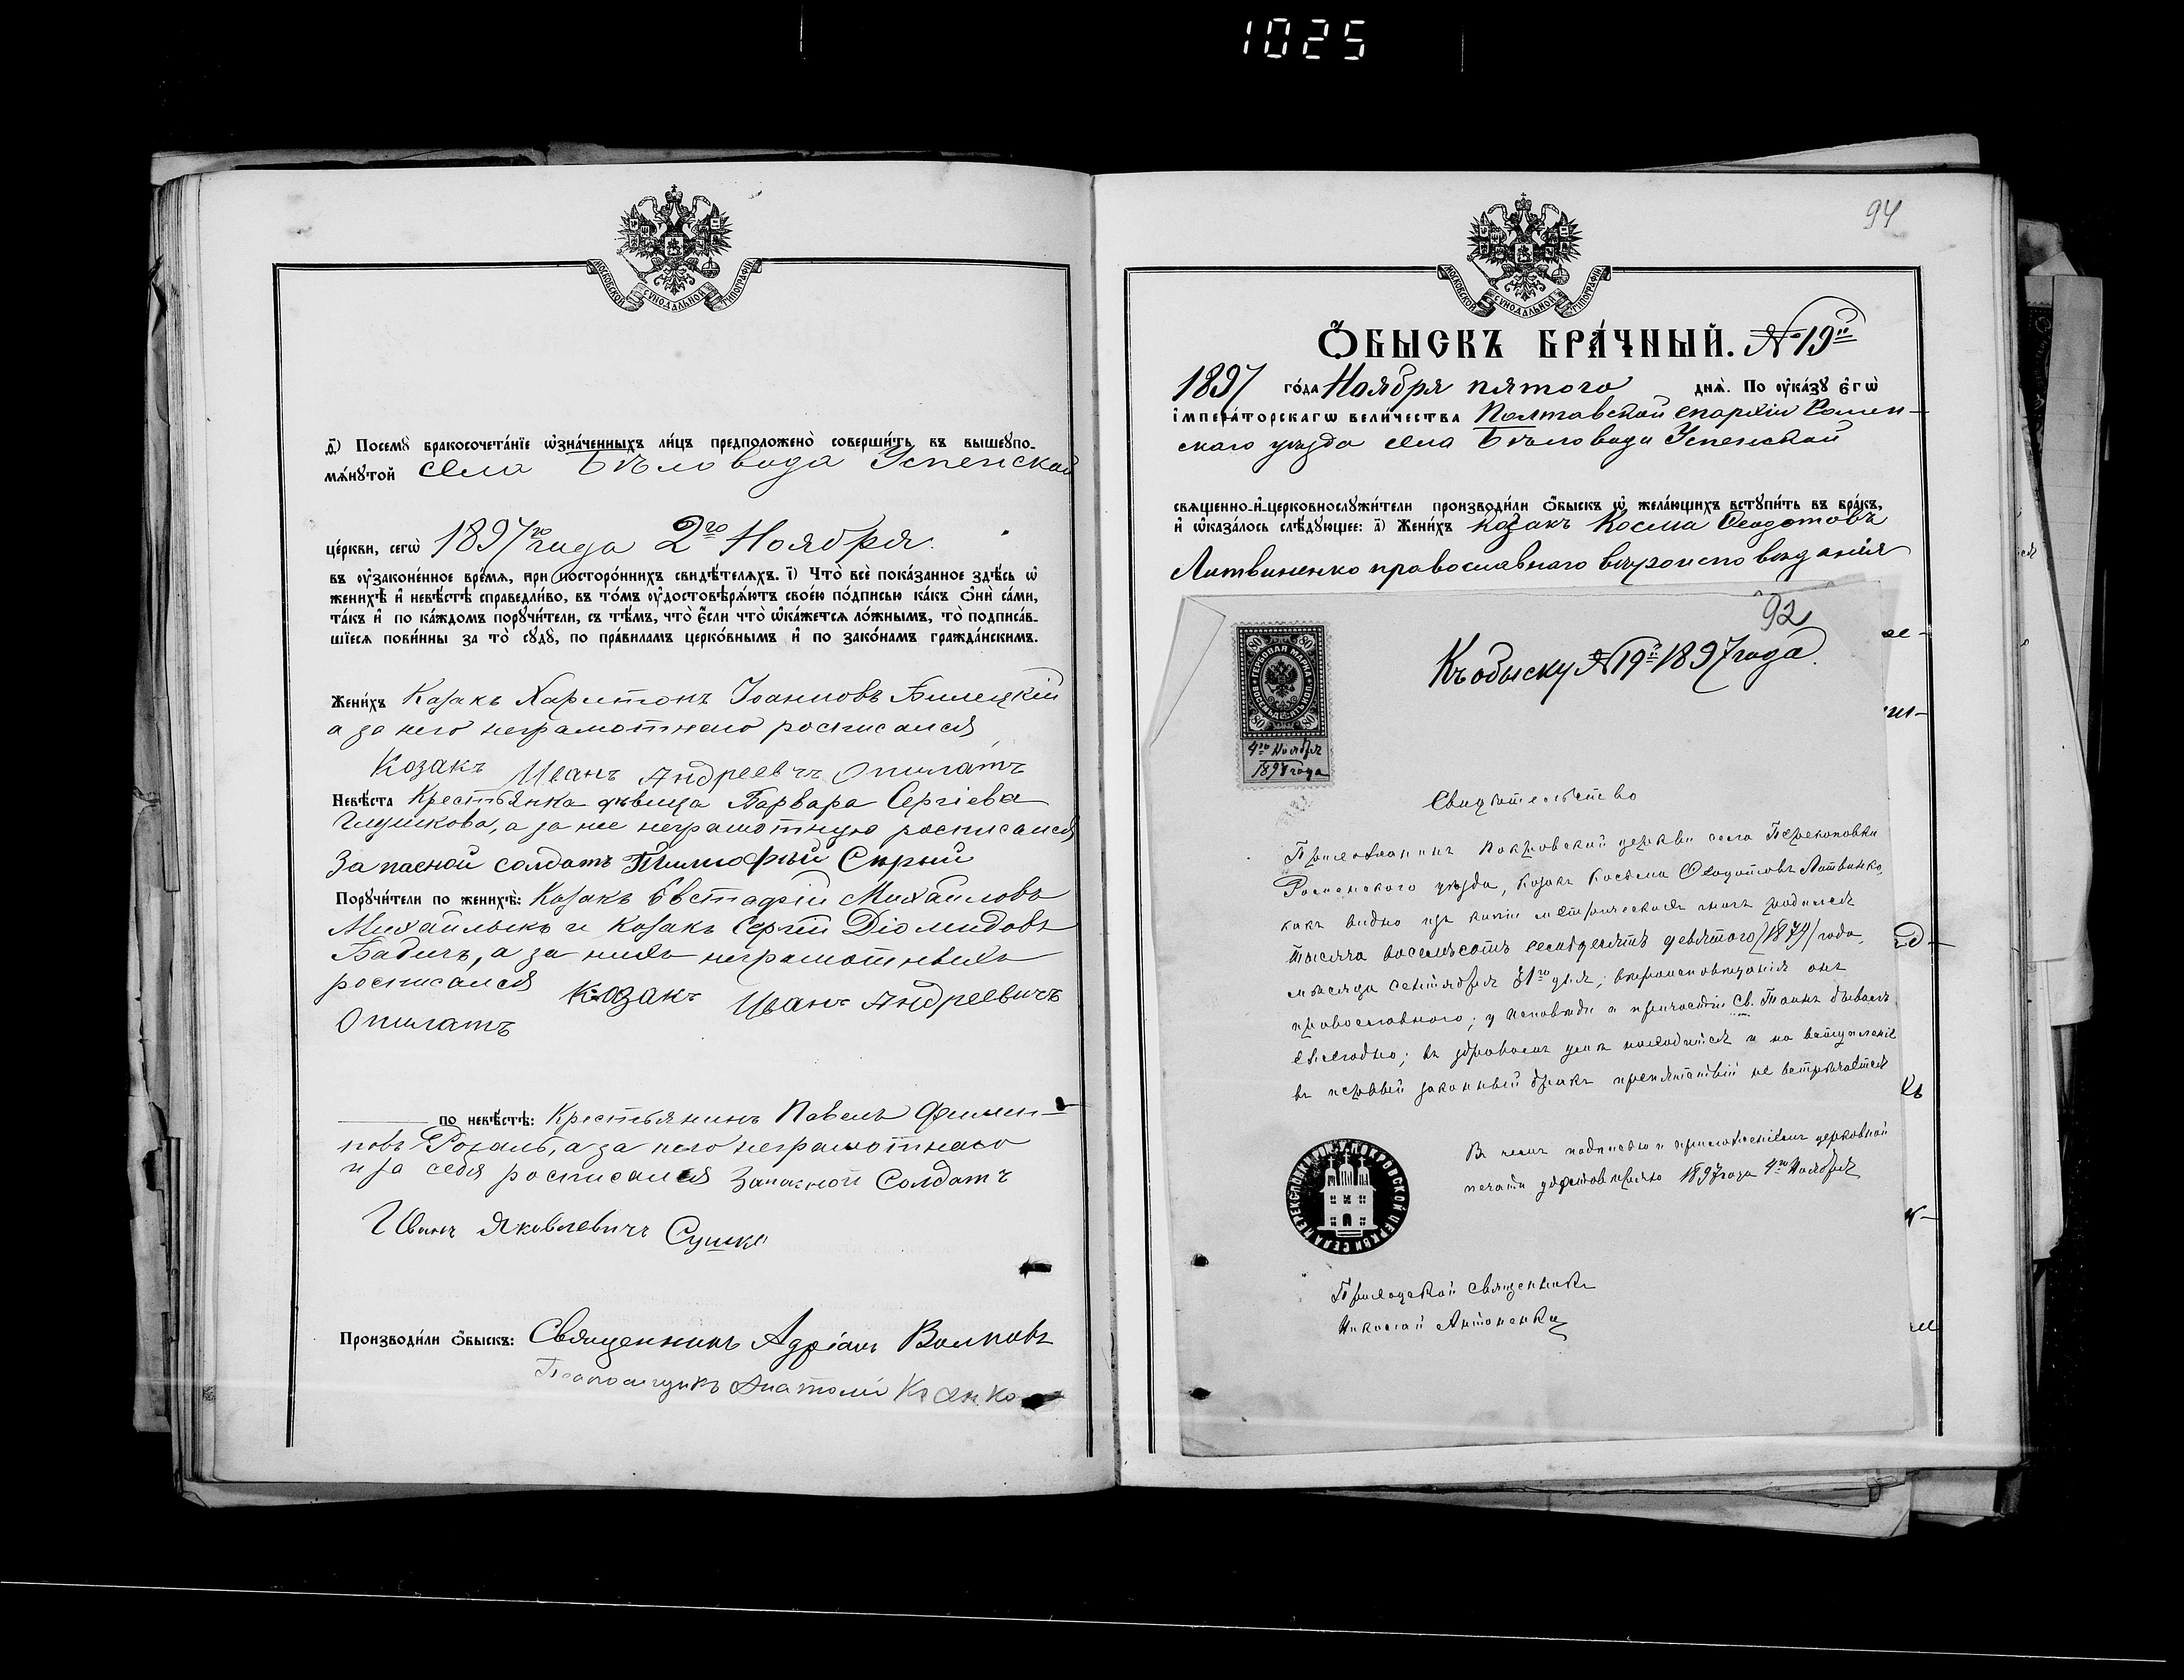 1025
МОСКОВСКОЙ СѴНОДАЛЬНОЙ ТИПОГРАФІИ
д҃і) Посемꙋ̀ бракосочета́нїе ѡзна́ченныхъ ли́цъ предположено̀ соверши́ть въ вышеꙋпо-
мѧ́нꙋтой села Бѣловода Успенской
це́ркви, сегѡ̀ 1897го года 2го Ноября.
въ ᲂу҆зако́ненное вре́мѧ, при посторо́ннихъ свидѣ́телѧхъ. і҃) Что̀ всѐ пока́занное здѣ́сь ѡ҆
женихѣ̀ и҆ невѣ́стѣ справедли́во, въ то́мъ ᲂу҆достовѣрѧ́ютъ свое́ю по́дписью ка́къ ѻ҆нѝ са́ми,
та́къ и҆ по ка́ждомъ порꙋчи́тели, съ тѣ́мъ, что̀ є҆́сли что̀ ѡ҆ка́жетсѧ ло́жнымъ, то̀ подписа́в-
шїесѧ пови́нны за то̀ сꙋдꙋ̀, по пра́виламъ церко́внымъ и҆ по зако́намъ гражда́нскимъ.
Жени́хъ Козакъ Харитонъ Іоанновъ Билецкій
а за него неграмотнаго росписался
Козакъ Иванъ Андреевичъ Опилатъ
Невѣ́ста Крестьянка дѣвица Варвара Сергіева
Глушкова, а за нее неграмотную росписался
Запасной солдатъ Тимофѣй Сирый
Порꙋчи́тели по женихѣ̀: Козакъ Евстафій Михайловъ
Михайлыкъ и Козакъ Сергій Діомидовъ
Бабичъ, а за нихъ неграмотныхъ
росписался Козакъ Иванъ Андреевичъ
Опилатъ
по невѣ́стѣ: Крестьянинъ Павелъ Филип-
повъ Розаль, а за него неграмотнаго
и за себя росписался Запасной Солдатъ
Иванъ Яковлевичъ Сушко
Производи́ли ѻ҆́быскъ: Священникъ Адріанъ Волковъ
Псаломщикъ Анатолій
94
МОСКОВСКОЙ СѴНОДАЛЬНОЙ ТИПОГРАФІИ
Ѻ҆́БЫСКЪ БРА́ЧНЫЙ. №19й
1897 го́да Ноября пятого днѧ̀. По ᲂу҆ка́зꙋ є҆гѡ̀
і҆мпера́торскагѡ вели́чества Полтавской епархіи Ромен-
скаго уѣзда села Бѣловода Успенской
свѧще́нно-и҆-церковнослꙋжи́тели производи́ли ѻ҆́быскъ ѡ҆ жела́ющихъ встꙋпи́ть въ бра́къ,
и҆ ѡ҆каза́лось слѣ́дꙋющее: а҃) Жени́хъ козакъ Косма Ѳеодотовъ
Литвиненко православнаго вѣроисповѣданія
92
Къ обыску №19й 1897 года.
80 80
ГЕРБОВАЯ МАРКА ВОСЕМЬДЕСЯТЪ КОП.
80 80
4го Ноября
1897 года
Свидѣтельство
Прихожанинъ Покровской церкви села Перекоповки
Роменского уѣзда, козакъ Косьма Ѳеодотовъ Литвинко,
какъ видно изъ копіи метрическихъ книгъ родился
тысяча восемьсотъ семьдесятъ девятого /1879/ года,
мѣсяца сентября 31го дня; вѣроисповѣданія онъ
православного; у исповѣди и причастіи Св. Таинъ бываетъ
ежегодно; въ здравомъ умѣ находится и на вступленіе
въ первый законный бракъ препятствій не встрѣчается
Въ чемъ подписью и приложеніемъ церковной
печати удостовѣряю 1897 года 4го Ноября
ПОКРОВСКОЙ ЦЕРКВИ СЕЛА ПЕРЕКОПОВКИ
Приходской Священникъ
Николай Антоненко